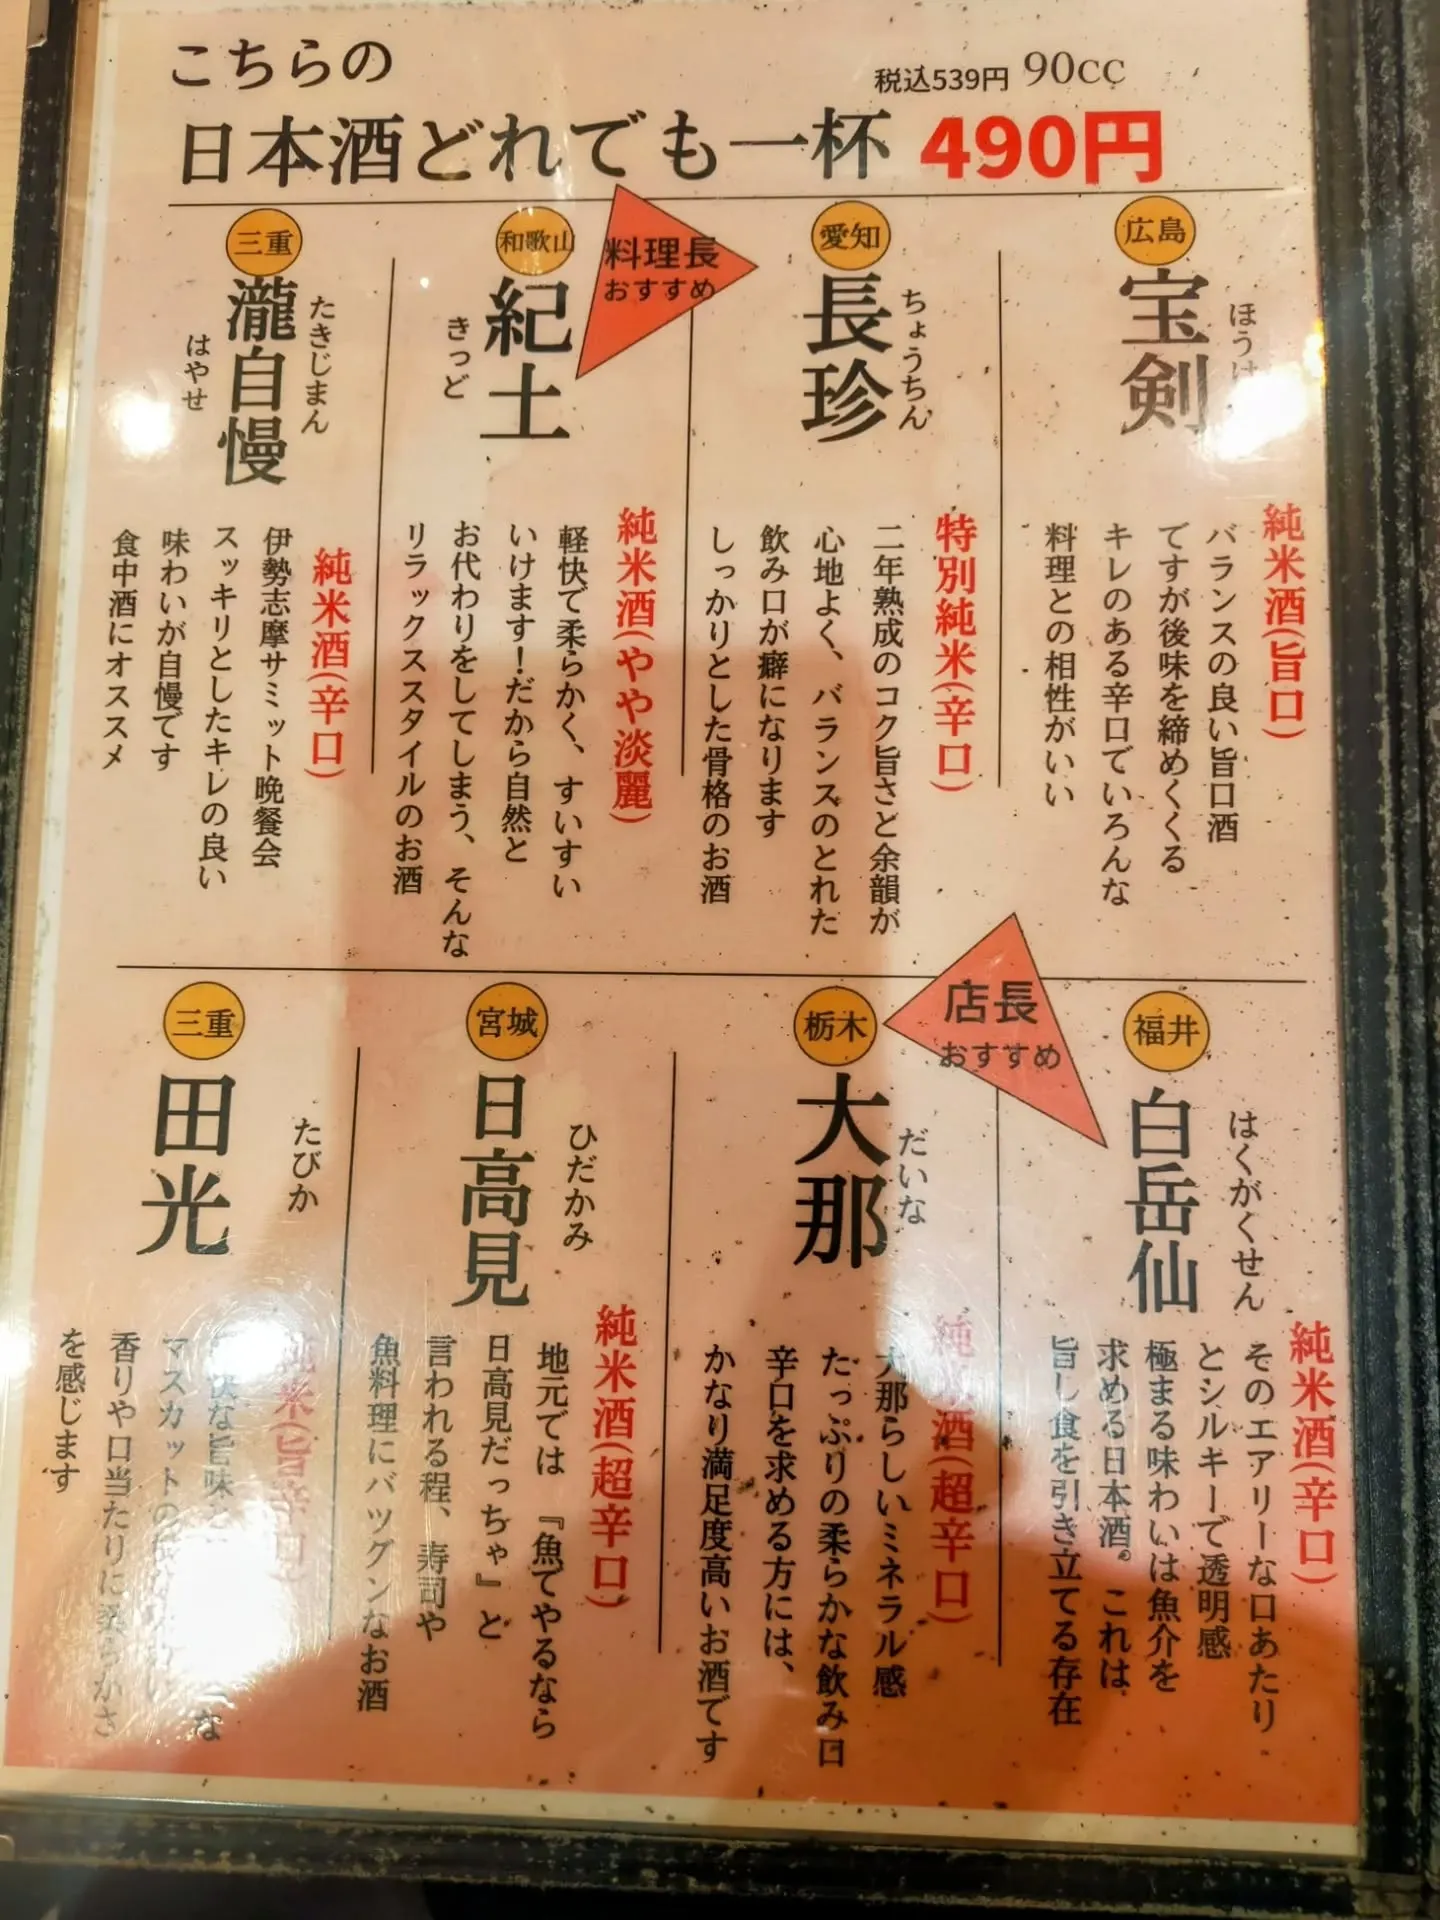 こちらの
税込539円 90cc
日本酒どれでも一杯 490円
広島
宝剣
純米酒(旨口)
バランスの良い旨口酒
ですが後味を締めくくる
キレのある辛口でいろんな
料理との相性がいい
愛知
ちょうちん
長珍
特別純米(辛口)
二年熟成のコク旨さと余韻が
心地よく、バランスのとれた
飲み口が癖になります
しっかりとした骨格のお酒
料理長
おすすめ
和歌山
紀土
きっど
純米酒(やや淡麗)
軽快で柔らかく、すいすい
いけます!だから自然と
お代わりをしてしまう、そんな
リラックススタイルのお酒
三重
たきじまん
瀧自慢
はやせ
純米酒(辛口)
伊勢志摩サミット晩餐会
スッキリとしたキレの良い
味わいが自慢です
食中酒にオススメ
福井
はくがくせん
白岳仙
純米酒(辛口)
そのエアリーな口あたり
とシルキーで透明感
極まる味わいは魚介を
求める日本酒。これは
旨し食を引き立てる存在
店長
おすすめ
栃木
だいな
大那
純 酒(超辛口)
大那らしいミネラル感
たっぷりの柔らかな飲み口
辛口を求める方には、
かなり満足度高いお酒です
宮城
ひだかみ
日高見
純米酒(超辛口)
地元では『魚でやるなら
日高見だっちゃ』と
言われる程、寿司や
魚料理にバツグンなお酒
三重
たびか
田光
米(旨辛口)
快な旨味
マスカットの
香りや口当たりに柔らかさ
を感じます